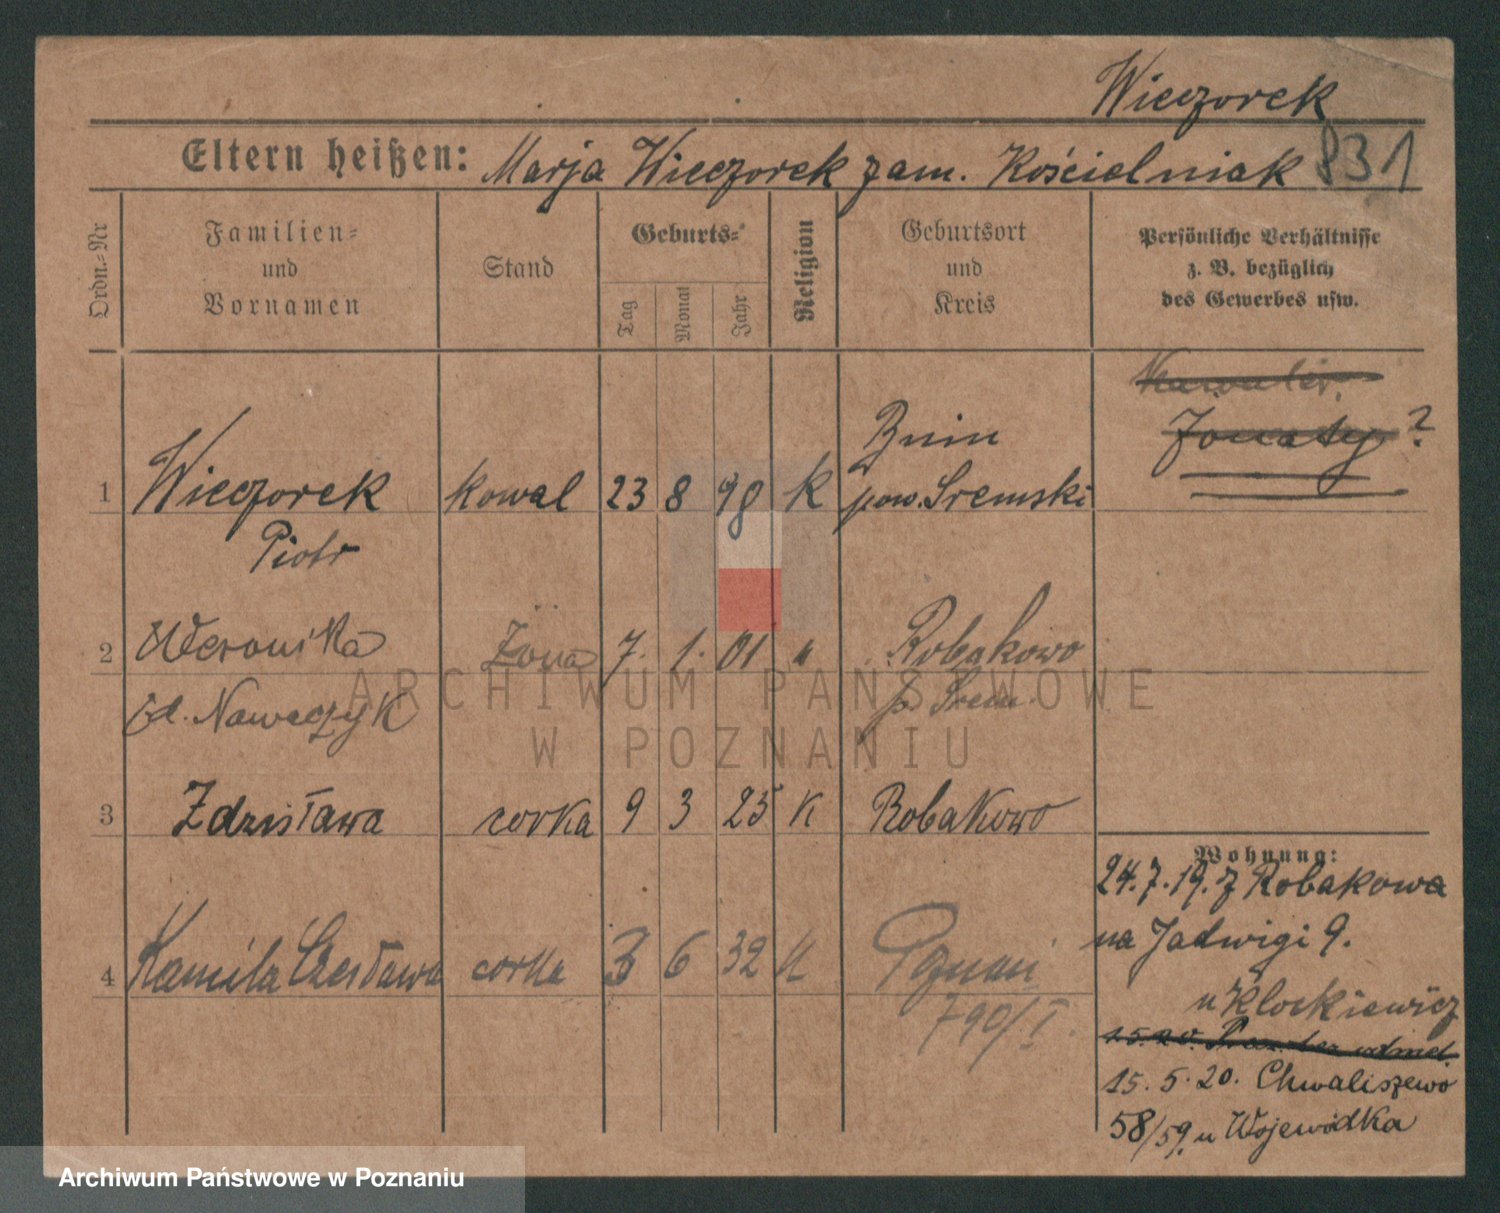 Wieczorek
Eltern heißen: Marja Wieczorek zam. Kościelniak 831
Ordn.-Nr
Familien- und Vornamen
Stand
Geburts-
Tag
Monat
Jahr
Religion
Geburtsort und Kreis
Persönliche Verhältnisse
z. B. bezüglich
des Gewerbes usw.
Kawaler.
Żonaty?
Bnin
1 Wieczorek kowal 23 8 98 K pow. Śremski
Piotr
2 Weronika Żona 7. 1. 01 " Robakowo
Nawaczyk p. Śrem
3 Zdzisława corka 9 3 25 K Robakowo
4 Kamila Czesława corka 3 6 32 K Poznań
790/I.
Wohnung:
24.7.19. z Robakowa
na Jadwigi 9.
u Klockiewicz
15. 5. 20. Chwaliszewo
58/59. u Wojewódka
ARCHIWUM PAŃSTWOWE
W POZNANIU
Archiwum Państwowe w Poznaniu